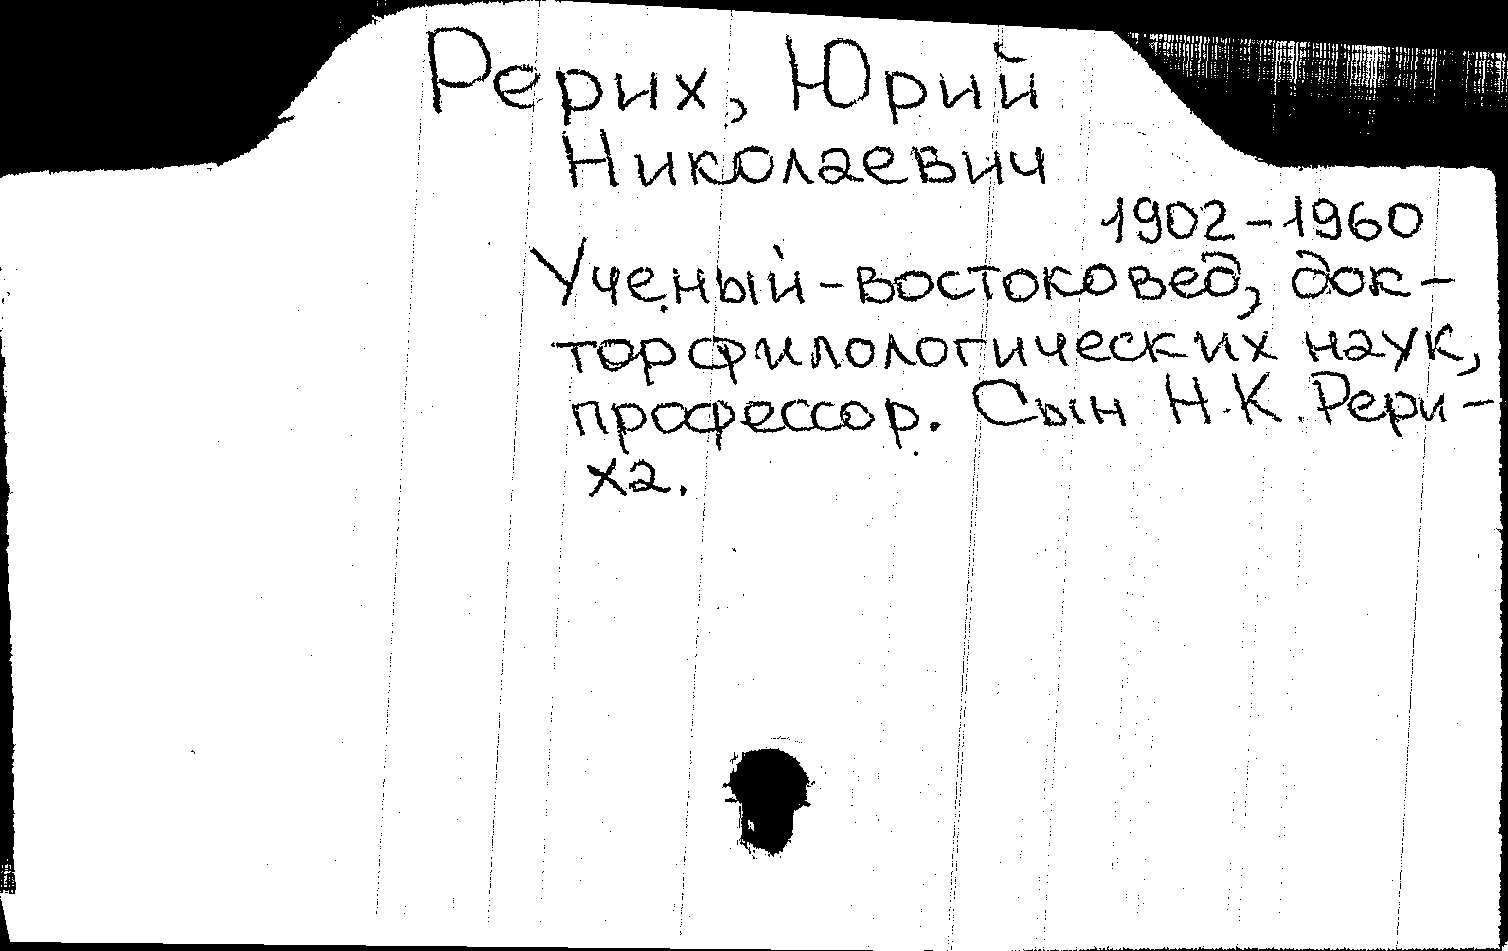 Рерих, Юрий
Николаевич
1902-1960
Ученый-востоковед, док-
тор филологических наук,
профессор. Сын Н.К. Рери-
ха.